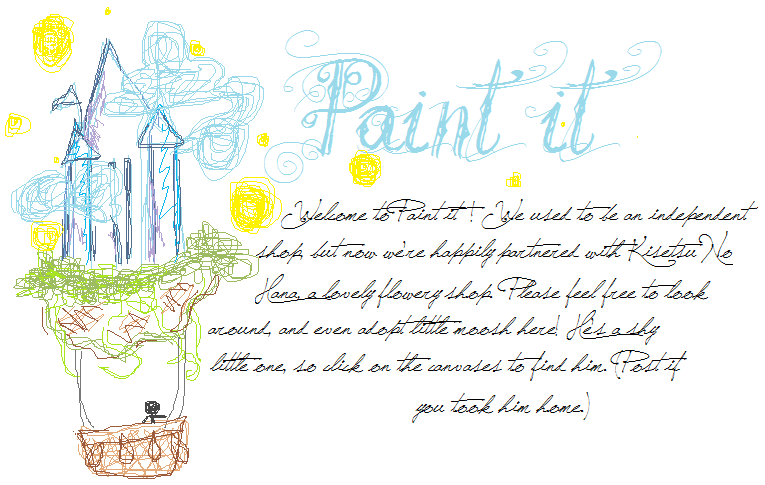 Paint it
Welcome to Paint it ! We used to be an independent
shop, but now we're happily partnered with Kisetsu No
Hana, a lovely flowery shop. Please feel free to look
around, and even adopt little moosh here! He's a shy
little one, so click on the canvases to find him. (Post if
you took him home.)